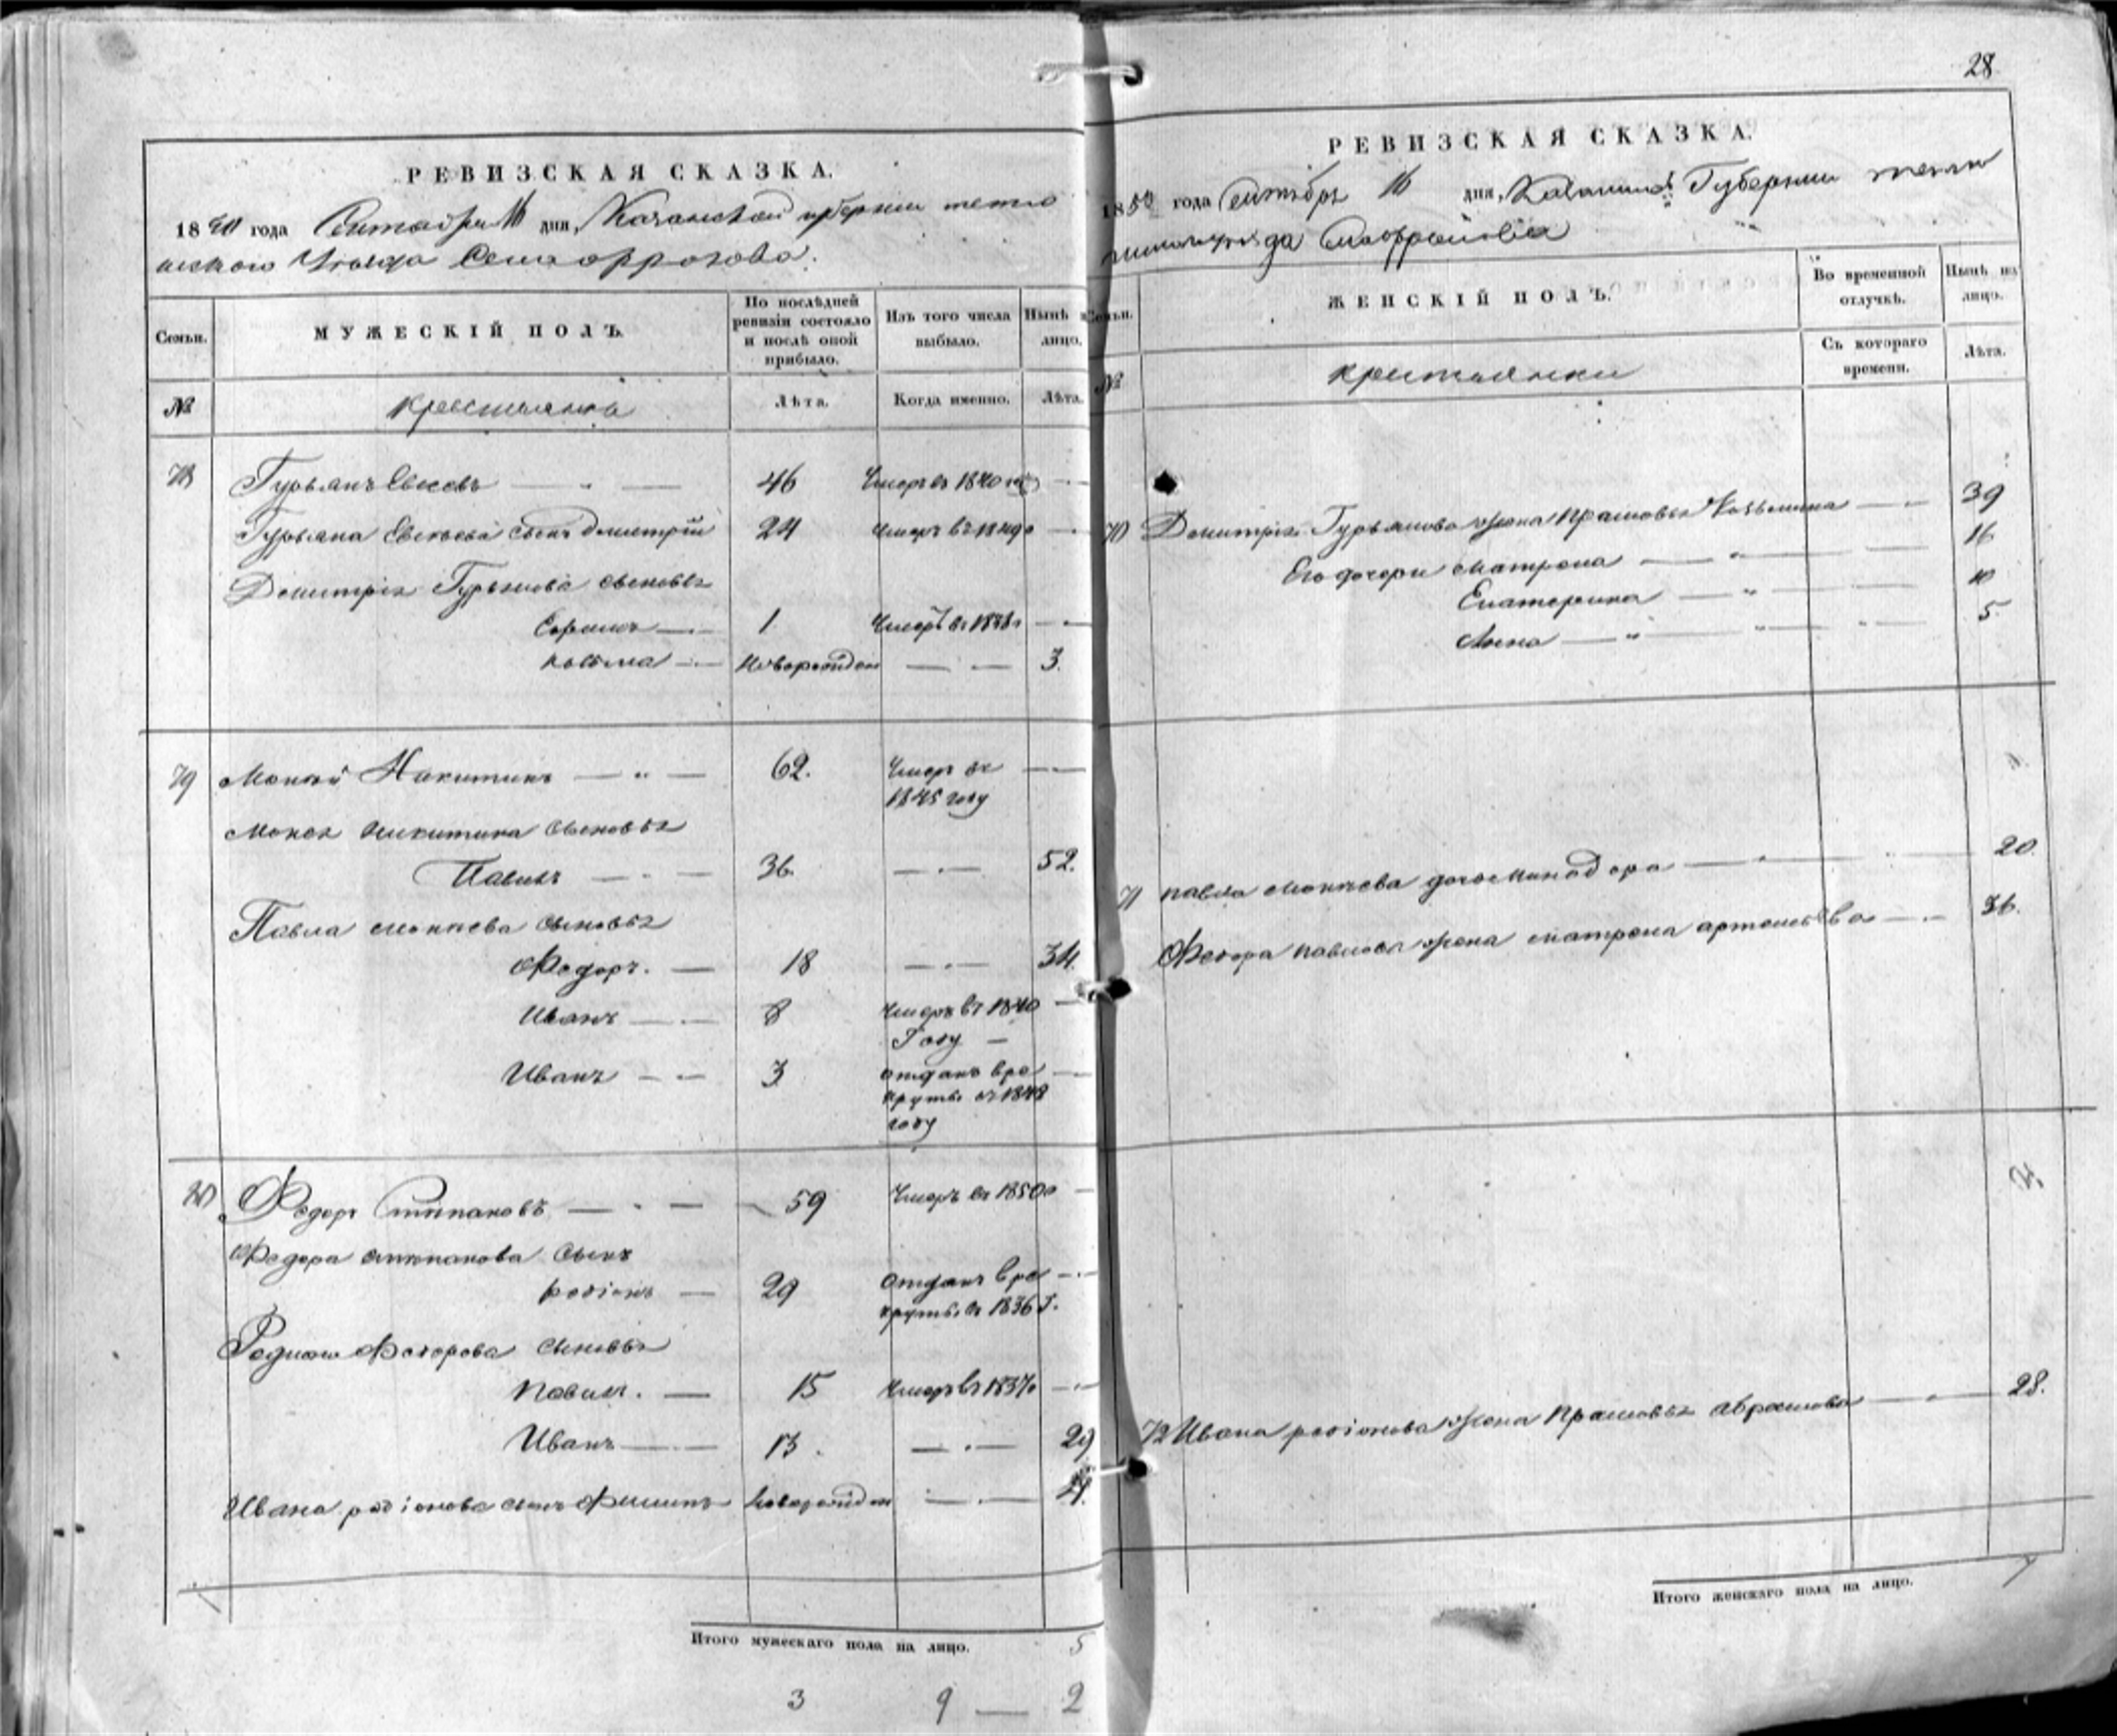 РЕВИЗСКАЯ СКАЗКА.
1850 года Сентября 16 дня, Казанской губернии тетю
шскаго Уезда Села
Семьи.
МУЖЕСКІЙ ПОЛЪ.
По послѣдней ревизіи состояло и послѣ оной прибыло.
Изъ того числа выбыло.
Нынѣ на лицо.
№
крестьянъ
Лѣта.
Когда именно.
Лѣта.
78 Гурьянъ Евсеевъ 46 Умеръ въ 1840
Гурьяна Евсеева сынъ дмитрій 24 умеръ въ
Дмитрія Гурьянова сыновья
1 Умеръ въ
козьма новорожден 3.
79 Мокей Никитинъ 62. Умеръ въ
1845 году
Мокея никитина сыновья
Павилъ 36. 52.
Павла мокѣева сыновья
Федоръ. 18 34.
Иванъ 8 Умеръ въ 1840
Году
Иванъ 3 отданъ вре
круты въ 1848
году
80 Федоръ Степановъ 59 Умеръ въ 1850
Федора степанова сынъ
родіонъ 29 отданъ вре
круты въ 1836 г.
Родиона Федорова сыновья
павилъ. 15 Умеръ въ 1837
Иванъ 13. 29
Ивана родіонова сынъ Филипъ новорожден
Итого мужескаго пола на лицо. 5
3 9 2
28
РЕВИЗСКАЯ СКАЗКА.
1850 года сентября 16 дня, Казанской Губернии тетю
уезда
Семьи.
ЖЕНСКІЙ ПОЛЪ.
Во временной отлучкѣ.
Нынѣ на лицо.
№
крестьянки
Съ котораго времени.
Лѣта.
70 Дмитрія Гурьянова жена прасковья Козьмина 39
Его дочери матрена 16
Екатерина 10
Анна 5.
71 павла мокѣева дочь минадора 20.
Федора павлова жена матрена артемьева 36.
72 Ивана родіонова жена прасковья абрамова 28.
Итого женскаго пола на лицо. 7